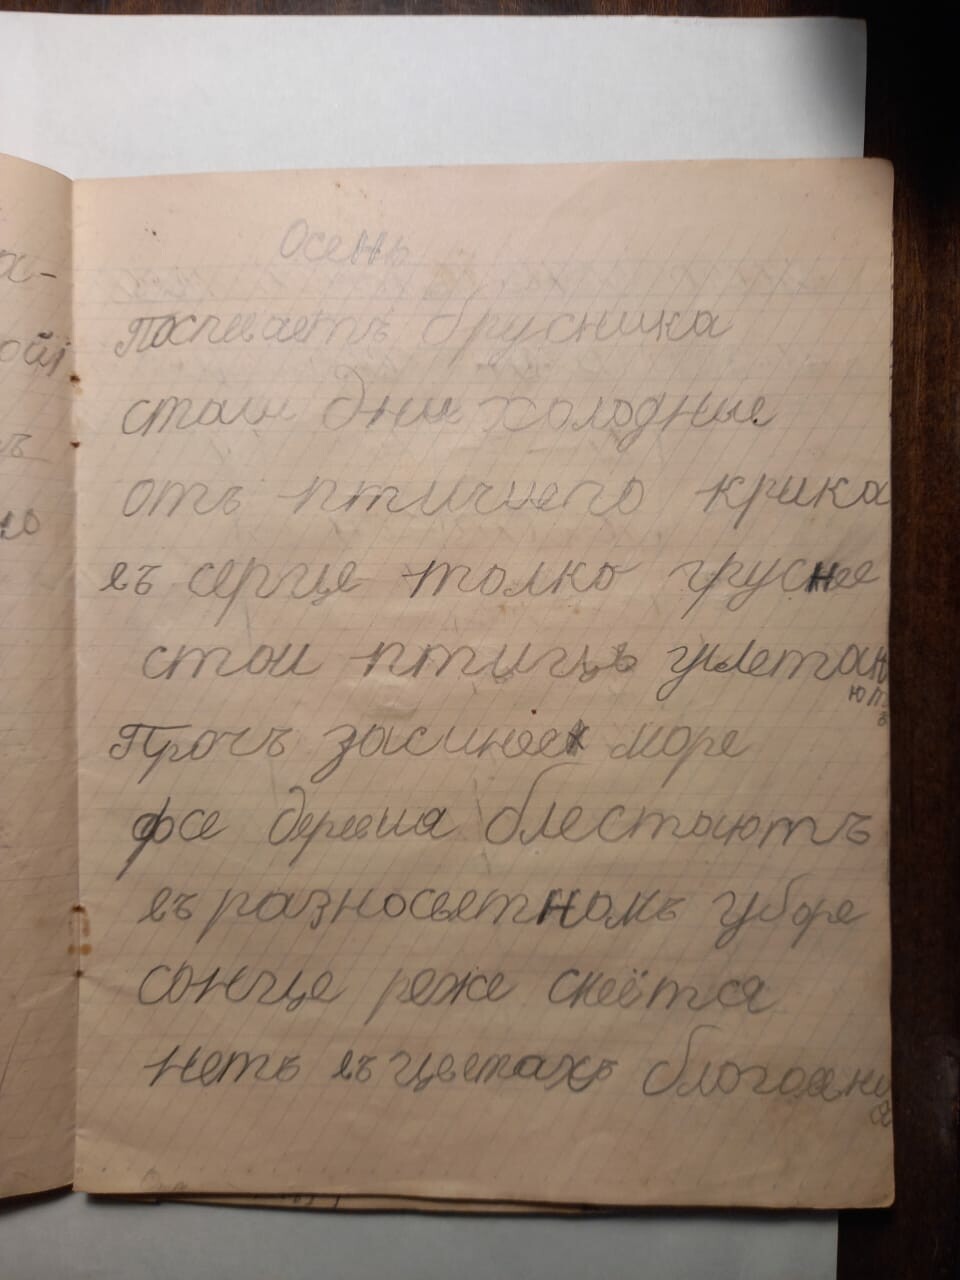 Осень
Поспеваетъ брусника
стаи дни холодные
отъ птичиего крика
въ серце толко груснее
стаи птицъ улетаю
ютъ
Прочъ засинее море
фсе деревиа блестаютъ
въ разносветномъ уборе
сонце реже смеётся
нетъ въ цветахъ благоани
я